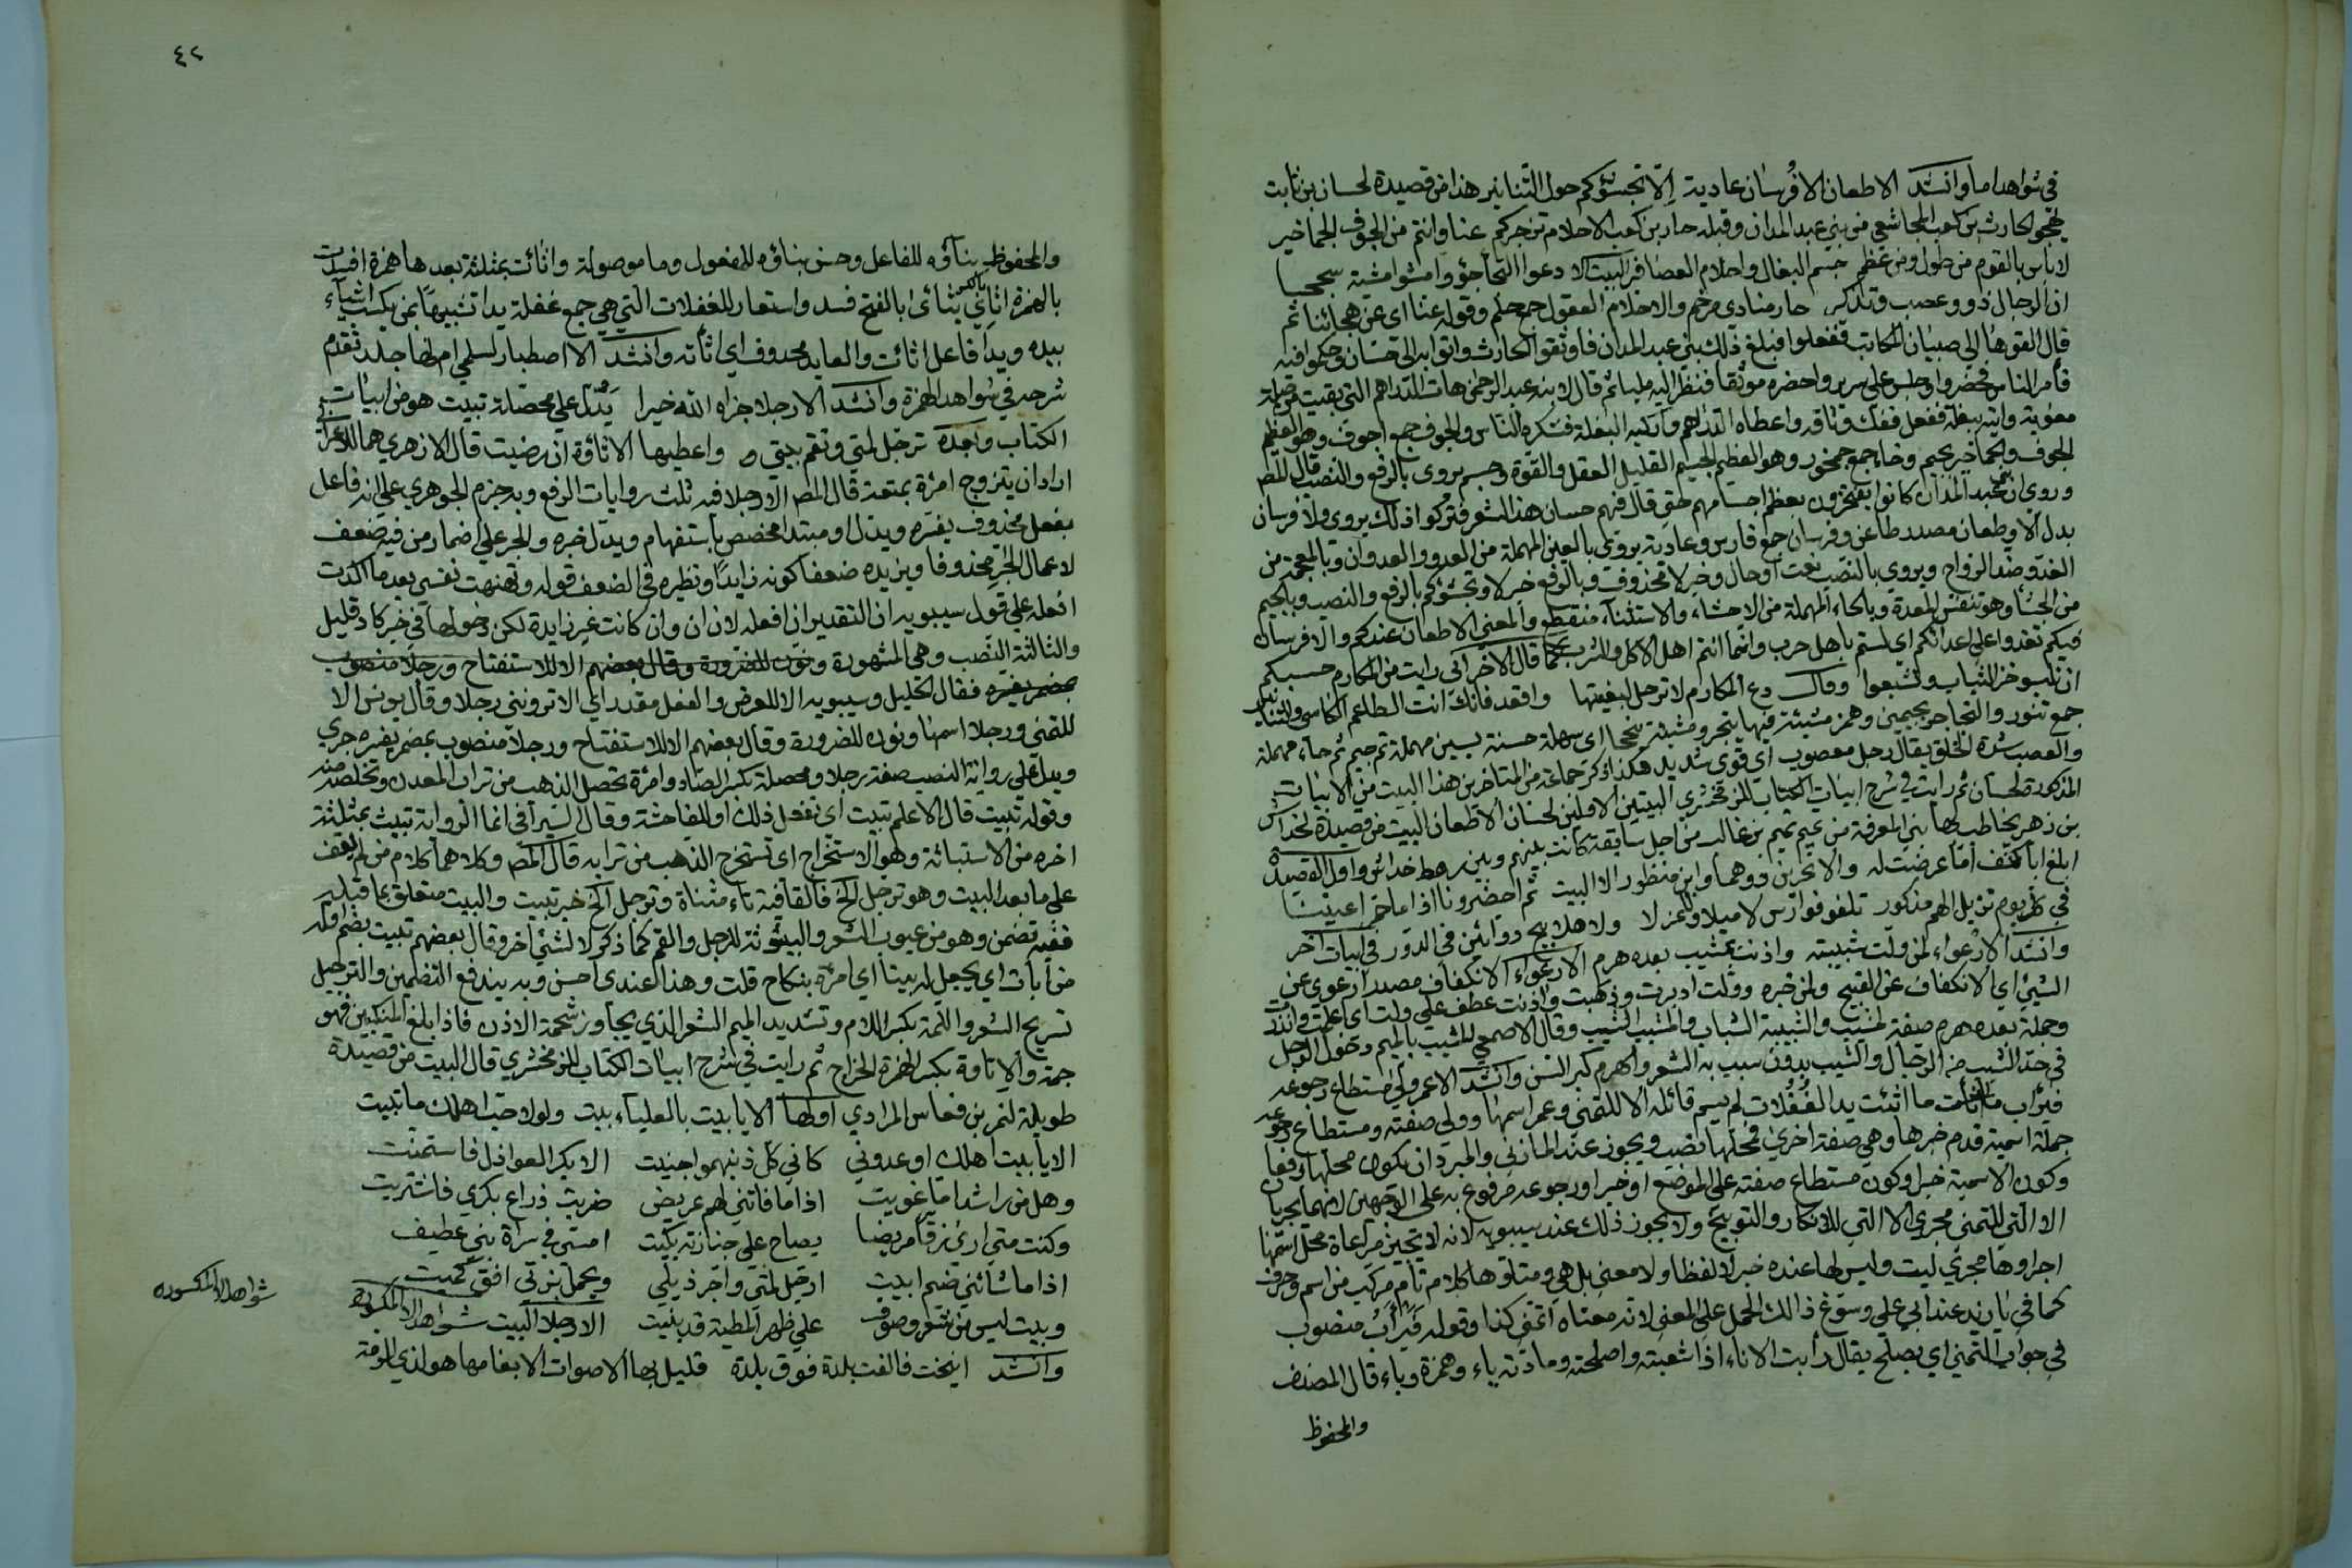 في شواهد اما وانشد الا طعان الا فرسان عادية الا تجشؤكم حول التنانير هذا من قصيدة لحسان بن ثابت
يهجو الحارث بن كعب المجاشعي من بني عبد المدان وقبله حار بن كعب الا احلام تزجركم عنا وانتم من الجوف الجماخير
لا باس بالقوم من طول ومن عظم جسم البغال واحلام العصافر البيت الا دعوا التجاجؤ وامشوا مشية سجحا
ان الرجال ذوو عصب وتذكير حار منادى مرخم والاحلام العقول جمع حلم وقوله عنا اي عن هجائنا ثم
قال القوها الي صبيان المكاتب ففعلوا فبلغ ذلك بني عبد المدان فاوثقوا الحارث واتوا به الى حسان وحكموا فيه
فامر الناس فحضروا وجلس على سرير واحضره موثقا فنظر اليه مليا ثم قال لابنه عبد الرحمن هات الدراهم التي بقيت من صلة
معوية واتيه ببغلة ففعل ففك وثاقه واعطاه الدراهم واركبه البغلة فشكره الناس والجوف جمع اجوف وهو العظيم
الجوف والجماخير بجيم وخاء جمع جمخور وهو العظيم الجسيم القليل العقل والقوة وجسم يروى بالرفع والنصب قال المص
وروي ان بني عبد المدان كانوا يفتخرون بعظم اجسامهم حتى قال فيهم حسان هذا الشعر فتركوا ذلك يروى ولا فرسان
بدل الا وطعان مصدر طاعن وفرسان جمع فارس وعادية يروى بالعين المهملة من العدو والعدوان وبالمعجمة من
الغدو ضد الرواح ويروى بالنصب نعت او حال وخبر لا محذوف وبالرفع خبر لا وتجشؤكم بالرفع والنصب وبالجيم
من الجشأ وهو تنفس المعدة وبالحاء المهملة من الاحشاء والاستثناء منقطع والمعنى الا طعان عندكم والا فرسان
فيكم تغدوا على اعدائكم اي لستم باهل حرب وانما انتم اهل الاكل والشرب كما قال الاخر اني رايت من المكارم حسبكم
ان تلبسوا خز الثياب وتشبعوا وقال دع المكارم لا ترحل لبغيتها واقعد فانك انت الطاعم الكاسي والتنانير
جمع تنور والتجاجؤ بجيمين وهمز مشيئة فيها تبختر ومشية سجحا اي سهلة حسنة بسين مهملة ثم جيم ثم حاء مهملة
والعصب شدة الخلق يقال رجل معصوب اي قوي شديد هكذا ذكر جماعة من المتاخرين هذا البيت من الابيات
المذكورة لحسان ثم رايت في شرح ابيات الكتاب للزمخشري البيتين الاولين لحسان الا طعان البيت من قصيدة لخداش
بن زهير يخاطب بها بني المعرفة من تميم تيم بن غالب من اجل سابقة كانت بينهم وبين رهط خداش واول القصيدة
ابلغ ابا كنف اما عرضت له والابجرين ووهبا وابن منظور الا البيت ثم احضرونا اذا ما احمر اعيننا
في كل يوم تزيل الهم مذكور تلقوا فوارس لا ميلا ولا عزلا ولا هلابيج دوائين في الدور في ابيات اخر
وانشد الا ارعواء لمن ولت شبيبته واذنت بمشيب بعده هرم الارعواء الانكفاف مصدر ارعوى عن
الشيئ اي الانكفاف عن القبيح ولمن خبره وولت ادبرت وذهبت واذنت عطف على ولت اي اعلمت وانذرت
وجملة بعده هرم صفة لمشيب والشبيبة الشباب والمشيب الشيب وقال الاصمعي المشيب بالميم دخول الرجل
في حد الشيب من الرجال والشيب بدون سبب به الشعر والهرم كبر السن وانشد الا عمر ولى مستطاع رجوعه
فيرأب ما اثأت ما اثئت يد الغفلات لم يسم قائله الا للتمني وعمر اسمها وولى صفته ومستطاع رجوعه
جملة اسمية قدم خبرها وهي صفة اخرى فمحلها نصب ويجوز عند المازني والمبرد ان يكون محلها رفعا
وكون الاسمية خبرا وكون مستطاع صفته على الموضع او خبرا ورجوعه مرفوع به على الوجهين لانهما يجريان
الا التي للتمني مجرى الا التي للانكار والتوبيخ ولا يجوز ذلك عند سيبويه لانه لا يجيز مراعاة محل اسمها
اجراوها مجرى ليت وليس لها عنده خبر لا لفظا ولا معنى بل هي ومتلوها كلام تام مركب من اسم وحرف
كما في يا زيد عند ابي علي وسوغ ذلك الحمل على المعنى لانه معناه اتمنى كذا وقوله فيرأب منصوب
في جواب التمني اي يصلح يقال رأبت الاناء اذا شعبته واصلحته ومادته ياء وهمزة وباء قال المصنف
والمحفوظ
٤٢
والمحفوظ بناؤه للفاعل وحسن بناؤه للمفعول وما موصولة واثائت بمثلثة بعدها همزة افسدت
بالهمزة اثاني بالكسر يثائ ابالفتح فسد واستعار للغفلات التي هي جمع غفلة يدا تشبيها بمن يكسب اشياء
بيده ويدا فاعل اثائت والعايد محذوف اي اثأته وانشد الا اصطبار لسلمى ام لها جلد تقدم
شرحه في شواهد الهمزة وانشد الا رجلا جزاه الله خيرا يدل على محصلة تبيت هو من ابيات
الكتاب وبعده ترجل لمتي وتقم بيتي واعطيها الاتاوة ان رضيت قال الازهري هما لاعرابي
اراد ان يتزوج امرئة بمتعة قال المص الا رجلا فيه ثلث روايات الرفع وبه جزم الجوهري على انه فاعل
بفعل محذوف يفسره ويدل او مبتدا مخصص باستفهام ويدل خبره والجر على اضمار من فيه ضعف
لاعمال الجر محذوفا ويزيده ضعفا كونه زايدا ونظيره في الضعف قوله ونهنهت نفسي بعد ما كدت
افعله على قول سيبويه ان التقدير ان افعله لان ان وان كانت غير زايدة لكن دخولها في خبر كاد قليل
والثالثة النصب وهي المشهورة ونون للضرورة وقال بعضهم الا للاستفتاح ورجلا منصوب
بمضمر يفسره فقال الخليل وسيبويه الا للعرض والفعل مقدر اي الا ترونني رجلا وقال يونس الا
للتمني ورجلا اسمها ونون للضرورة وقال بعضهم الا للاستفتاح ورجلا منصوب بمضمر يفسره جزى
ويدل على رواية النصب صفة رجلا ومحصلة بكسر الصاد وامرئة تحصل الذهب من تراب المعدن وتخلصه منه
وقوله تبيت قال الاعلم تبيت اي تفعل ذلك او للفاحشة وقال السيرافي انما الرواية تبيث بمثلثة
اخره من الاستباثة وهو الاستخراج اي تستخرج الذهب من ترابه قال المص وكلاهما كلام من لم يقف
على ما بعد البيت وهو ترجل الخ فالقافية تاء مثناة وترجل الخ خبر تبيت والبيت متعلق بما قبله
ففيه تضمن وهو من عيوب الشعر والبيتوتة للرجل والقم كما ذكر لا لشئ اخر وقال بعضهم تبيت بضم اوله
من ابات اي يجعل له بيتا اي امرئة بنكاح قلت وهذا عندي احسن وبه يندفع التضمين والترجيل
تسريح الشعر واللمة بكسر اللام وتشديد الميم الشعر الذي يجاوز شحمة الاذن فاذا بلغ المنكبين فهو
جمة والاتاوة بكسر الهمزة الخراج ثم رايت في شرح ابيات الكتاب للزمخشري قال البيت من قصيدة
طويلة لنمر بن قعاس المرادي اولها الا يا بيت بالعلياء بيت ولولا حب اهلك ما تبيت
الا يا بيت اهلك اوعدوني كاني كل ذنبهموا جنيت الا بكر العواذل فاستمنت
وهل من راشد اما غويت اذا ما فاتني لحم غريض ضربت ذراع بكري فاشتريت
وكنت متى ارى زقا مريضا يصاح على جنازته بكيت امشي في سراة بني عطيف
اذا ما سائني ضيم ابيت ارجل لمتي واجر ذيلي ويحمل بزتي افق كميت
وبيت ليس من شعر وصوف على ظهر المطية قد بنيت الا رجلا البيت شواهد الا المكسورة
وانشد انيخت فالقت بلدة فوق بلدة قليل بها الاصوات الا بغامها هو لذي الرمة
شواهد الا المكسوره